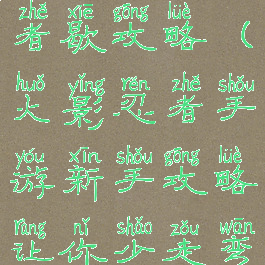 zhě xiē gōng lüè
者歇攻略(
huǒ yǐng rěn zhě shǒu
火影忍者手
yóu xīn shǒu gōng lüè
游新手攻略
ràng nǐ shǎo zǒu wān
让你少走弯